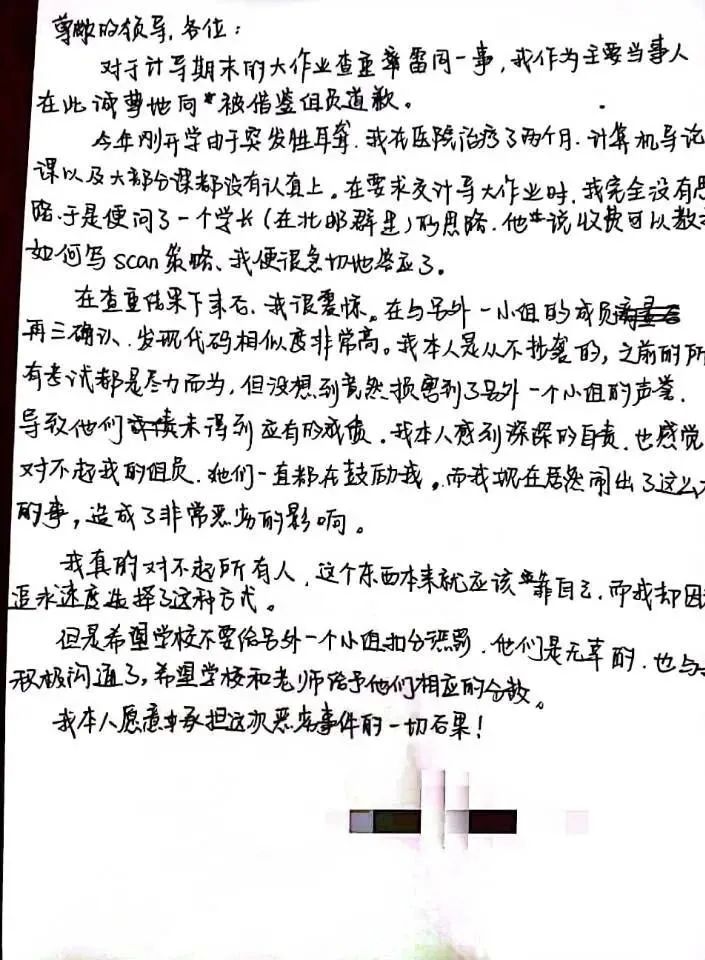 尊敬的领导,各位:
对于计导期末的大作业查重率雷同一事,我作为主要当事人
在此诚挚地向被借鉴组员道歉。
今年刚开学由于突发性耳聋,我在医院治疗了两个月,计算机导论
课以及大部分课都没有认真上。在要求交计导大作业时,我完全没有思
路,于是便问了一个学长(在北邮群里)的思路,他说收费可以教
如何写scan策略、我便很急切地答应了。
在查重结果下来后,我很震惊。在与另外一小组的成员
再三确认,发现代码相似度非常高。我本人是从不抄袭的,之前的所
有考试都是尽力而为,但没想到竟然损害到了另外一个小组的声誉,
导致他们未得到应有的成绩。我本人感到深深的自责,也感觉
对不起我的组员,她们一直都在鼓励我。而我现在居然闹出了这么
的事,造成了非常恶劣的影响。
我真的对不起所有人,这个东西本来就应该靠自己,而我却因
追求速度选择了这种方式。
但是希望学校不要给另外一个小组扣分惩罚,他们是无辜的,也与
积极沟通了,希望学校和老师给予他们相应的分数。
我本人愿意承担这次恶劣事件的一切后果!